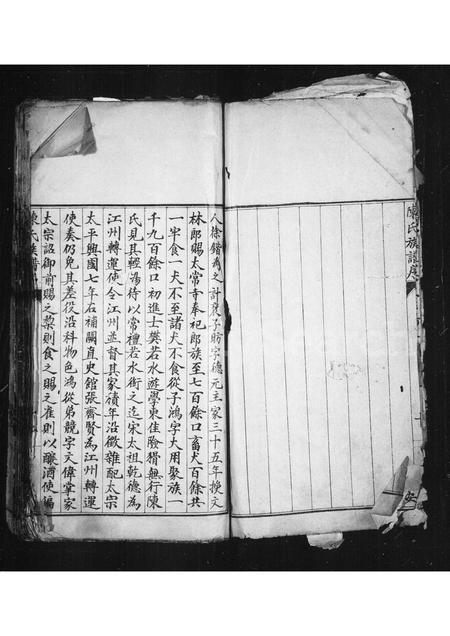 陳氏族譜序
八徐鍇為之記袞子昉字德元主家三十五年授文
林郎賜太常寺奉祀郎族至七百餘口畜犬百餘共
一牢食一犬不至諸犬不食從子鴻字大用聚族一
千九百餘口初進士樊若水遊學東佳猾無行陳
氏見其輕蕩待以常禮若水銜之迄宋太祖乾德為
江州轉運使令江州並督其家積年沿徵雜配太宗
太平興國七年右補闕直史館張齊賢為江州轉運
使奏仍免其差役沿科物色鴻從弟競字文偉掌家
太宗詔御前賜之棃則食之賜之雀則以釀酒使徧
陳氏族譜